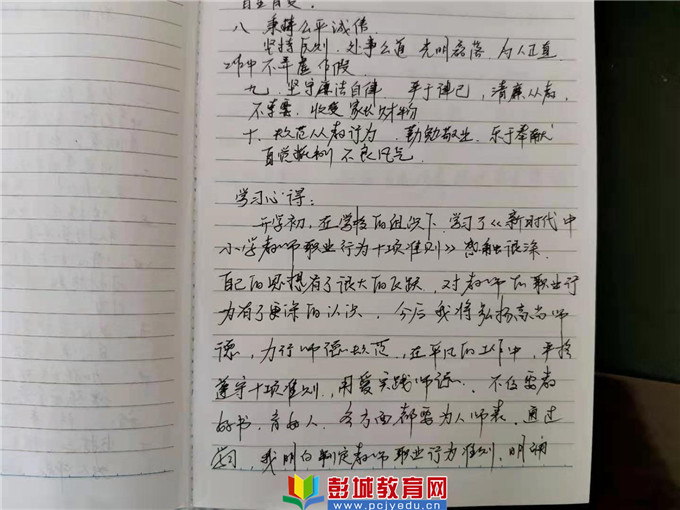 八、秉持公平诚信
坚持原则,处事公道,光明磊落,为人正直,
工作中不弄虚作假
九、坚守廉洁自律 严于律己,清廉从教,
不索要、收受家长财物
十、规范从教行为,勤勉敬业,乐于奉献
自觉抵制不良风气
学习心得:
开学初,在学校的组织下,学习了《新时代中
小学教师职业行为十项准则》感触很深
自己的思想有了很大的飞跃,对教师的职业行
为有了更深的认识,今后我将弘扬高尚师
德,力行师德规范,在平凡的工作中,严格
遵守十项准则,用爱实践师德,不仅要教
好书,育好人,各方面都要为人师表,通过
学习,我明白制定教师职业行为准则,明确
彭城教育网
www.pcjyedu.cn